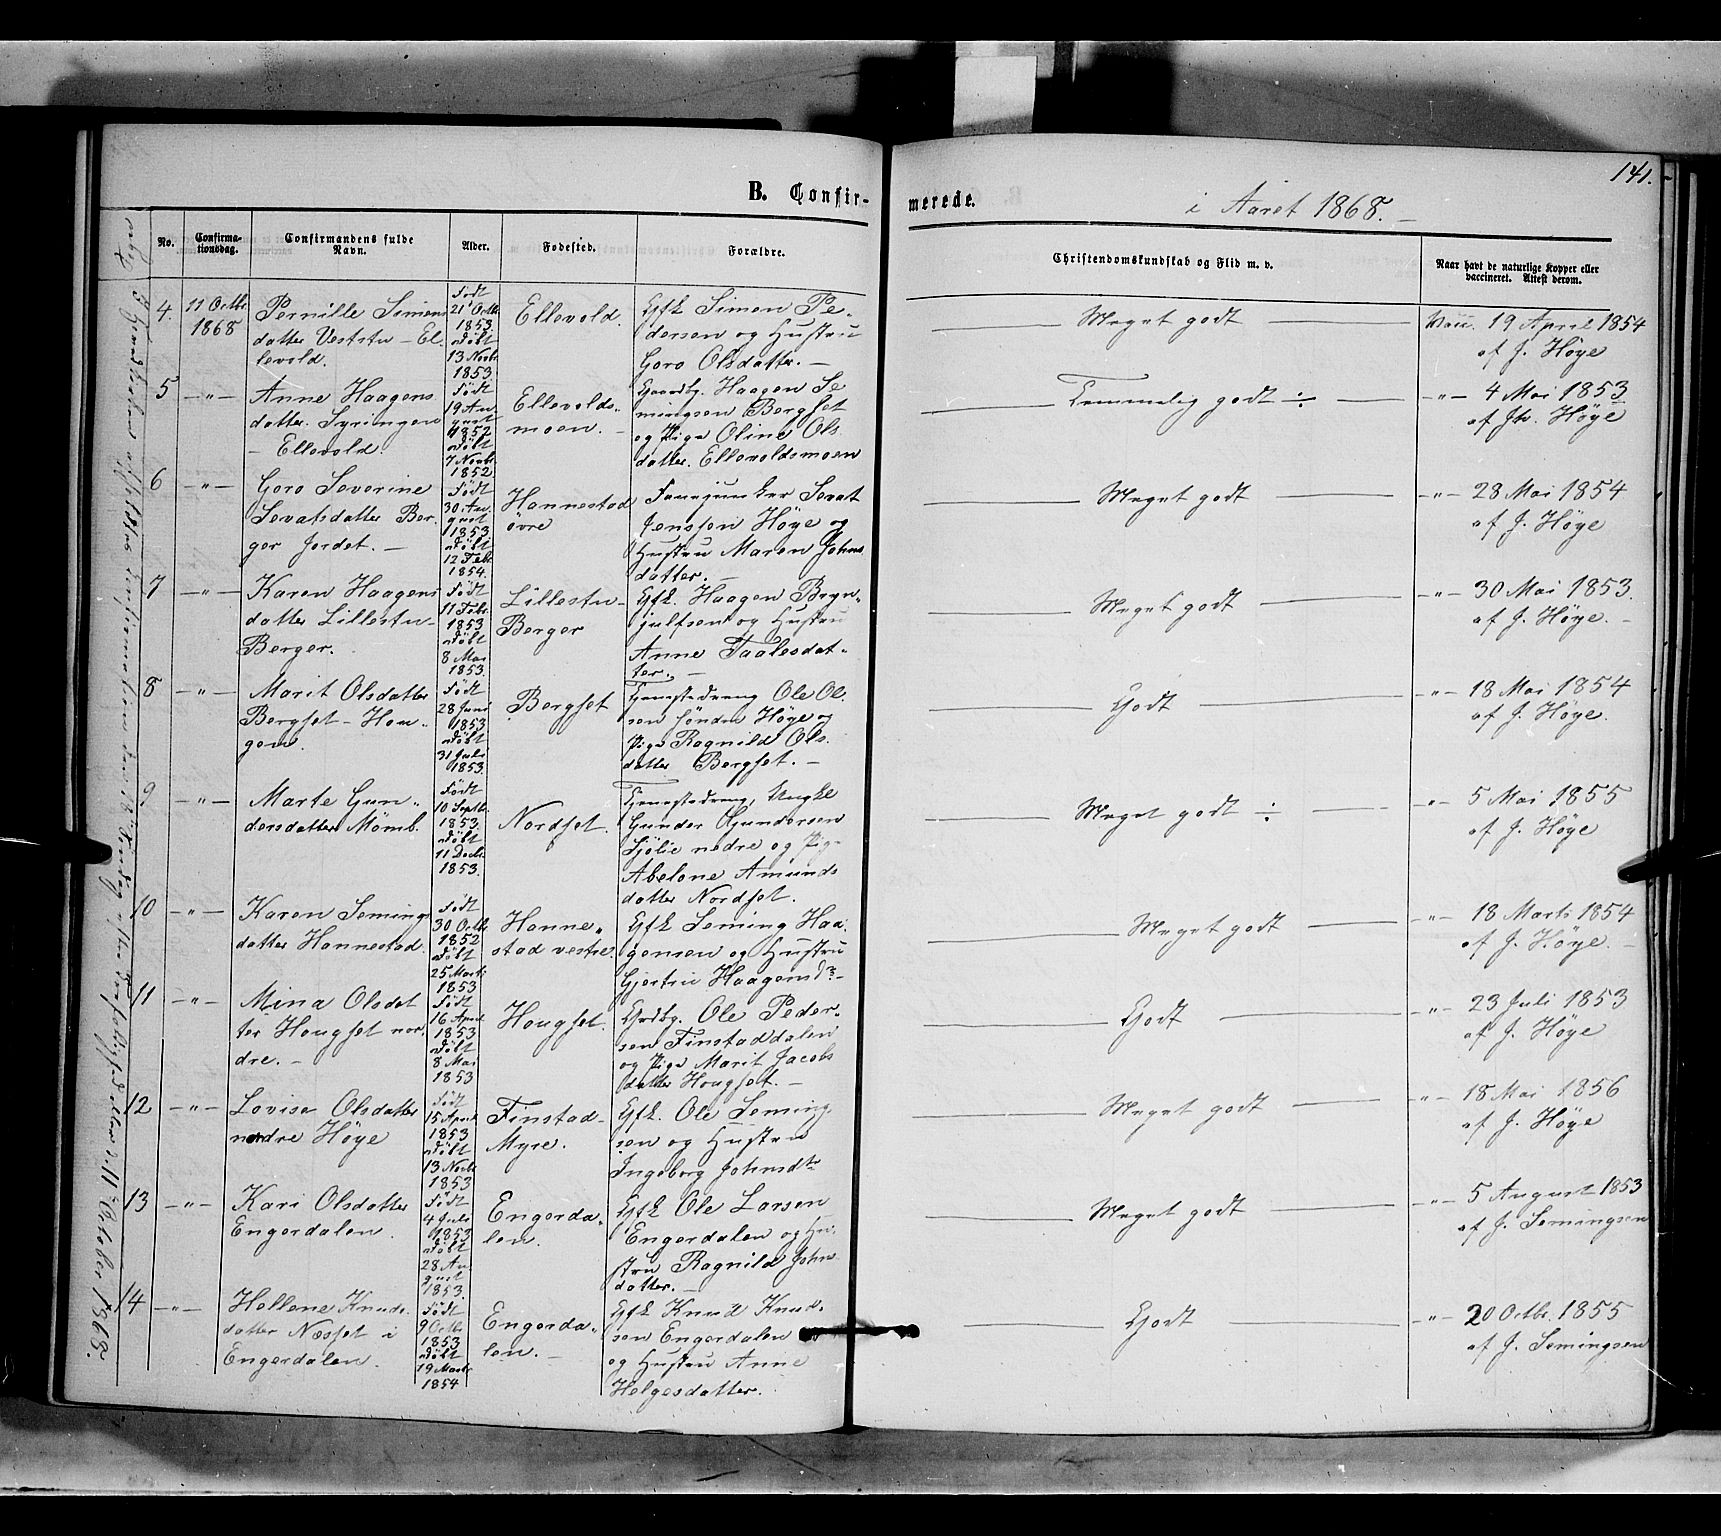 141.
B. Confirmerede. i Aaret 1868.
No. Confirmationsdag. Confirmandens fulde Navn. Alder. Fødested. Forældre. Christendomskundskab og Flid m. v. Naar havt de naturlige Kopper eller vaccineret. Attest derom.
4. 11 Octbr. 1868
Pernille Simens
datter Vestştu - El-
levold.
Født
21 Octb.
1853.
Døbt
13 Novb.
1853
Ellevold.
Gfk Simen Pe-
dersen og Hustru
Goro Olsdatter. -
Meget godt
Vacc. 19 April 1854
af J. Høye
5 -"-
Anne Haagens
datter Syringen
- Ellevold.
Født
19 Au-
gust
1852
Døbt
7 Novb.
1852
Ellevolds-
moen. -
Gaardbg. Haagen Se
mingsen Bergset
og Pige Oline Ols
datter Ellevoldsmoen
Temmelig godt ÷
-"- 4 Mai 1853
af Jh. Høye
6 -"-
Goro Severine
Sevatsdatter Ber-
ger Jordet. -
Født
30 Au-
gust
1853
Døbt
12 Feb.
1854.
Hannestad
øvre
Fanejunker Sevat
Jenssen Høye og
Hustru Maren Johns
datter. -
Meget godt
-"- 28 Mai 1854
af J. Høye
7 -"-
Karen Haagens
datter Lillestu-
Berger.
Født
11 Febr.
1853
Døbt
8 Mai
1853.
Lillestu-
Berger
Gfk. Haagen Bryn-
julfsen og Hustru
Anne Taalesdat-
ter. -
Meget godt
-"- 30 Mai 1853.
af J. Høye. -
8 -"-
Marit Olsdatter
Bergset - Hau-
gen.
Født
28 Juni
1853
Døbt
31 Juli
1853.
Bergset
Tjenestedreng Ole Ol-
sen søndre Høye og
Pige Ragnild Ols
datter Bergset. -
Godt
-"- 18 Mai 1854
af J. Høye.
9 -"-
Marte Gun-
dersdatter Mømb.
Født
10 Septb.
1853.
Døbt
11 Decb.
1853.
Nordset.
Tjenestedreng, Ungke
Gunder Gundersen
Sjølie nedre og Pige
Abelone Amunds
datter Nordset.
Meget godt ÷
-"- 5 Mai 1855
af J. Høye
10 -"-
Karen Semings
datter Hannestad.
Født
30 Octb.
1852
Døbt
25 Marts
1853
Hanne-
stad vestre.
Gfk Seming Haa-
gensen og Hustru
Gjertru Haagensdr -
Meget godt
-"- 18 Marts 1854
af J. Høye. -
11 -"-
Mina Olsdat
ter Hougset nor-
dre. -
Født
16 April
1853
Døbt
8 Mai
1853
Hougset.
Grdbg. Ole Peder-
sen Finstaddalen
og Pige Marit Jacobs
datter Hougset. -
Godt
-"- 23 Juli 1853
af J. Høye
12 -"-
Lovise Olsdatter
nordre Høye
Født
15 April
1853
Døbt
13 Novb.
1853
Finstad-
Myre.
Gfk. Ole Seming-
sen og Hustru
Ingeborg Johnsdtr
Meget godt
-"- 18 Mai 1856
af J. Høye
13 -"-
Kari Olsdatter
Engerdalen.
Født
4 Juli
1853
Døbt
28 Au-
gust
1853.
Engerda-
len.
Gfk Ole Larsen
Engerdalen og Hu-
stru Ragnild John
datter. -
Meget godt
-"- 5 August 1853
af J. Semingsen
14 -"-
Hellene Knuds-
datter Næsset i
Engerdalen.
Født
9 Octbr
1853
Døbt
19 Marts
1854
Engerda-
len. -
Gfk Knud Knud-
sen Engerdalen
og Hustru Anne
Helgesdatter.
Godt
-"- 20 Octbr. 1855
af J. Semingsen